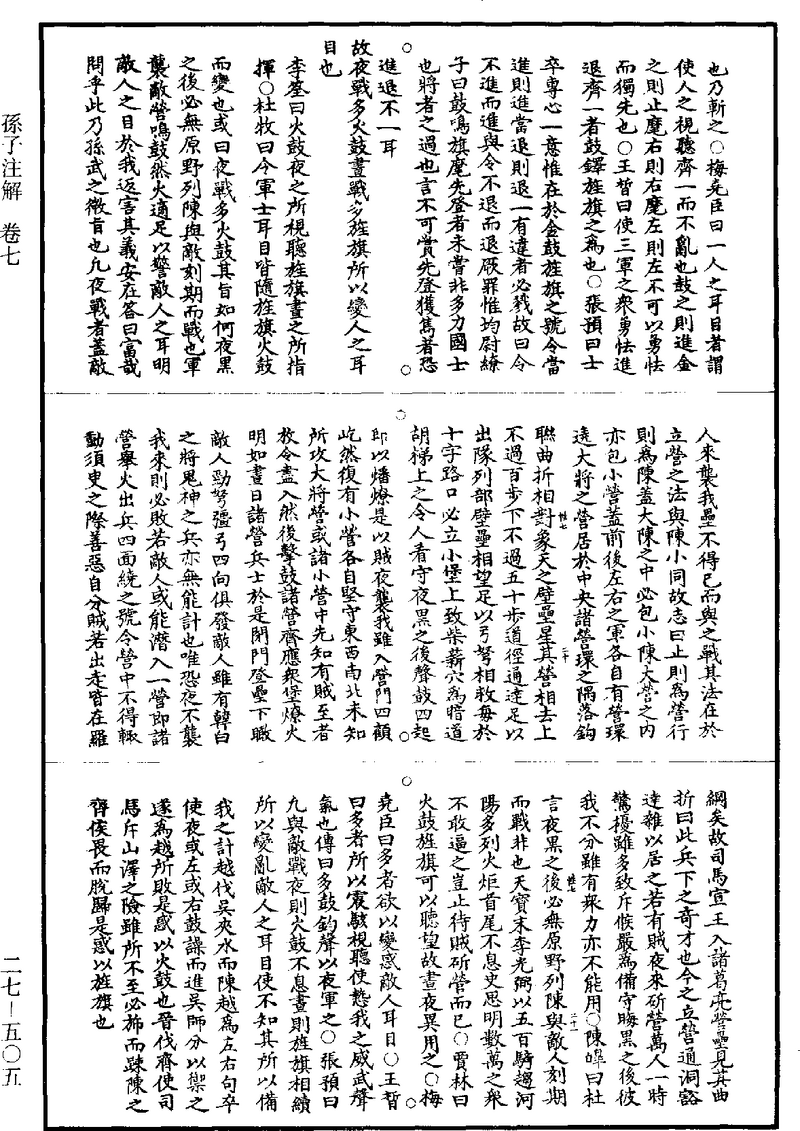 也乃斬之○梅堯臣曰一人之耳目者謂
使人之視聽齊一而不亂也鼓之則進金
之則止麾右則右麾左則左不可以勇怯
而獨先也○王晳曰使三軍之衆勇怯進
退齊一者鼓鐸旌旗之為也○張預曰士
卒專心一意惟在於金鼓旌旗之號令當
進則進當退則退一有違者必戮故曰令
不進而進與令不退而退厥罪惟均尉繚
子曰鼓鳴旗麾先登者未嘗非多力國士
也將者之過也言不可賞先登獲雋者恐
進退不一耳
故夜戰多火鼓晝戰多旌旗所以變人之耳
目也
李筌曰火鼓夜之所視聽旌旗晝之所指
揮○杜牧曰令軍士耳目皆隨旌旗火鼓
而變也或曰夜戰多火鼓其旨如何夜黑
之後必無原野列陳與敵刻期而戰也軍
襲敵營鳴鼓然火適足以警敵人之耳明
敵人之目於我返害其義安在答曰富哉
問乎此乃孫武之微旨也凡夜戰者蓋敵
人來襲我壘不得已而與之戰其法在於
立營之法與陳小同故志曰止則為營行
則為陳蓋大陳之中必包小陳大營之內
亦包小營蓋前後左右之軍各自有營環
遶大將之營居於中央諸營環之隅落鈎
聯曲折相對象天之壁壘星其營相去上
不過百步下不過五十步道徑通達足以
出隊列部壁壘相望足以弓弩相救每於
十字路口必立小堡上致柴薪穴為暗道
胡梯上之令人看守夜黑之後聲鼓四起
即以燔燎是以賊夜襲我雖入營門四顧
屹然復有小營各自堅守東西南北未知
所攻大將營或諸小營中先知有賊至者
放令盡入然後擊鼓諸營齊應衆堡燎火
明如晝日諸營兵士於是閉門登壘下瞰
敵人勁弩彊弓四向俱發敵人雖有韓白
之將鬼神之兵亦無能計也唯恐夜不襲
我來則必敗若敵人或能潛入一營即諸
營舉火出兵四面繞之號令營中不得輒
動須臾之際善惡自分賊若出走皆在羅
網矣故司馬宣王入諸葛亮營壘見其曲
折曰此兵下之奇才也今之立營通洞豁
達雜以居之若有賊夜來斫營萬人一時
驚擾雖多致斥候嚴為備守晦黑之後彼
我不分雖有衆力亦不能用○陳皥曰杜
言夜黑之後必無原野列陳與敵人刻期
而戰非也天寶末李光弼以五百騎趨河
陽多列火炬首尾不息史思明數萬之衆
不敢逼之豈止待賊斫營而已○賈林曰
火鼓旌旗可以聽望故晝夜異用之○梅
堯臣曰多者欲以變惑敵人耳目○王晳
曰多者所以震駭視聽使慹我之威武聲
氣也傳曰多鼓鈞聲以夜軍之○張預曰
凡與敵戰夜則火鼓不息晝則旌旗相續
所以變亂敵人之耳目使不知其所以備
我之計越伐吳夾水而陳越為左右句卒
使夜或左或右鼓譟而進吳師分以禦之
遂為越所敗是惑以火鼓也晉伐齊使司
馬斥山澤之險雖所不至必旆而踈陳之
齊侯畏而脫歸是惑以旌旗也
孫子注解　卷七
二七—五〇五